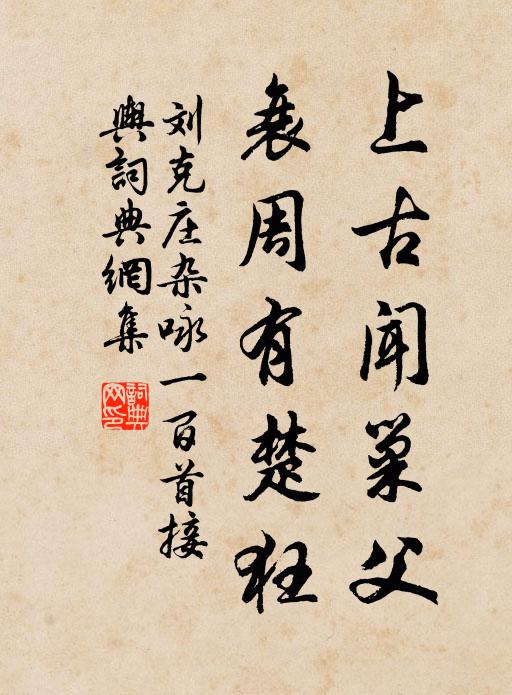 上古闻巢父
衰周有楚狂
刘克庄杂咏一百首接
舆词典网集
詞典网印